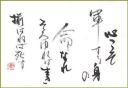 心こそ
軍する身の
命なれ
そろゆれば生き
揃はねば死す